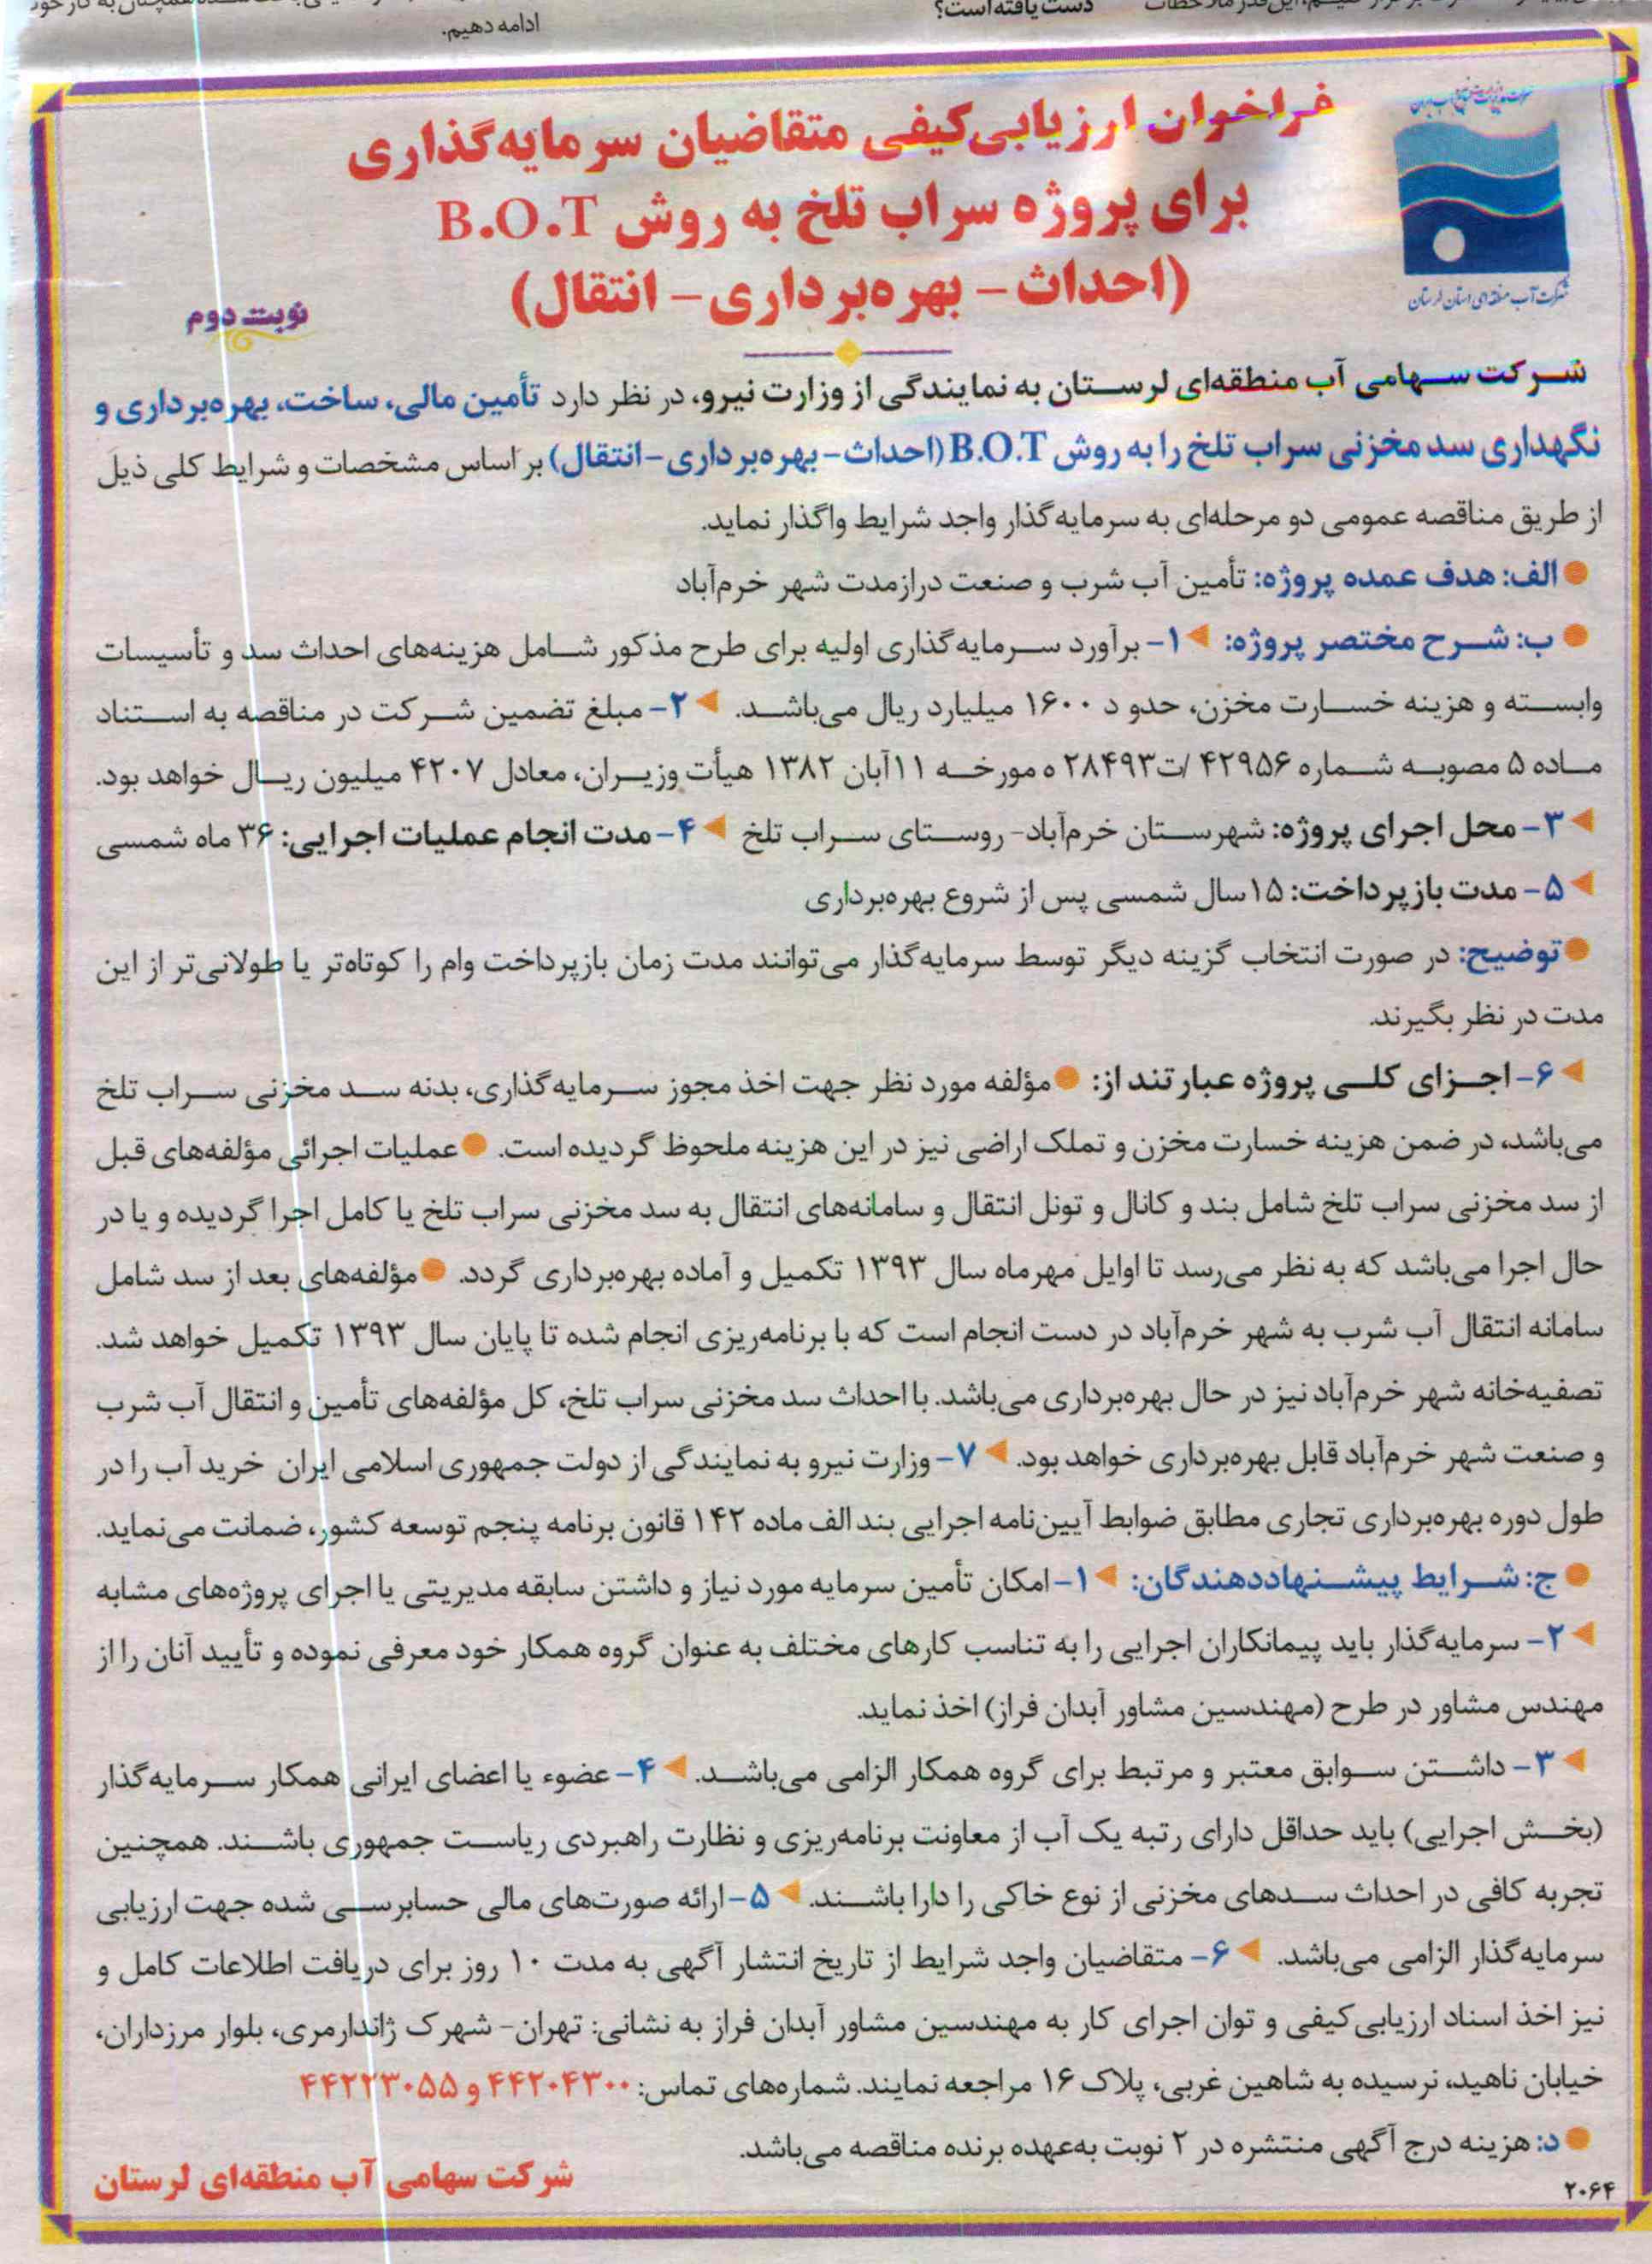 دست یافته است؟
ادامه دهیم.
فراخوان ارزیابی کیفی متقاضیان سرمایه‌گذاری
برای پروژه سراب تلخ به روش B.O.T
(احداث – بهره‌برداری – انتقال)
نوبت دوم
شرکت آب منطقه‌ای استان لرستان
شرکت سهامی آب منطقه‌ای لرستان به نمایندگی از وزارت نیرو، در نظر دارد تأمین مالی، ساخت، بهره‌برداری و
نگهداری سد مخزنی سراب تلخ را به روش B.O.T (احداث - بهره‌برداری - انتقال) بر اساس مشخصات و شرایط کلی ذیل
از طریق مناقصه عمومی دو مرحله‌ای به سرمایه‌گذار واجد شرایط واگذار نماید.
الف: هدف عمده پروژه: تأمین آب شرب و صنعت درازمدت شهر خرم‌آباد
ب: شرح مختصر پروژه: ۱- برآورد سرمایه‌گذاری اولیه برای طرح مذکور شامل هزینه‌های احداث سد و تأسیسات
وابسته و هزینه خسارت مخزن، حدو د ۱۶۰۰ میلیارد ریال می‌باشد. ۲- مبلغ تضمین شرکت در مناقصه به استناد
ماده ۵ مصوبه شماره ۴۲۹۵۶ /ت۲۸۴۹۳ ه مورخه ۱۱آبان ۱۳۸۲ هیأت وزیران، معادل ۴۲۰۷ میلیون ریال خواهد بود.
۳- محل اجرای پروژه: شهرستان خرم‌آباد- روستای سراب تلخ ۴- مدت انجام عملیات اجرایی: ۳۶ ماه شمسی
۵- مدت بازپرداخت: ۱۵ سال شمسی پس از شروع بهره‌برداری
توضیح: در صورت انتخاب گزینه دیگر توسط سرمایه‌گذار می‌توانند مدت زمان بازپرداخت وام را کوتاه‌تر یا طولانی‌تر از این
مدت در نظر بگیرند.
۶- اجزای کلی پروژه عبارتند از: مؤلفه مورد نظر جهت اخذ مجوز سرمایه‌گذاری، بدنه سد مخزنی سراب تلخ
می‌باشد، در ضمن هزینه خسارت مخزن و تملک اراضی نیز در این هزینه ملحوظ گردیده است. عملیات اجرائی مؤلفه‌های قبل
از سد مخزنی سراب تلخ شامل بند و کانال و تونل انتقال و سامانه‌های انتقال به سد مخزنی سراب تلخ یا کامل اجرا گردیده و یا در
حال اجرا می‌باشد که به نظر می‌رسد تا اوایل مهرماه سال ۱۳۹۳ تکمیل و آماده بهره‌برداری گردد. مؤلفه‌های بعد از سد شامل
سامانه انتقال آب شرب به شهر خرم‌آباد در دست انجام است که با برنامه‌ریزی انجام شده تا پایان سال ۱۳۹۳ تکمیل خواهد شد.
تصفیه‌خانه شهر خرم‌آباد نیز در حال بهره‌برداری می‌باشد. با احداث سد مخزنی سراب تلخ، کل مؤلفه‌های تأمین و انتقال آب شرب
و صنعت شهر خرم‌آباد قابل بهره‌برداری خواهد بود. ۷- وزارت نیرو به نمایندگی از دولت جمهوری اسلامی ایران خرید آب را در
طول دوره بهره‌برداری تجاری مطابق ضوابط آیین‌نامه اجرایی بند الف ماده ۱۴۲ قانون برنامه پنجم توسعه کشور، ضمانت می‌نماید.
ج: شرایط پیشنهاددهندگان: ۱- امکان تأمین سرمایه مورد نیاز و داشتن سابقه مدیریتی یا اجرای پروژه‌های مشابه
۲- سرمایه‌گذار باید پیمانکاران اجرایی را به تناسب کارهای مختلف به عنوان گروه همکار خود معرفی نموده و تأیید آنان را از
مهندس مشاور در طرح (مهندسین مشاور آبدان فراز) اخذ نماید.
۳- داشتن سوابق معتبر و مرتبط برای گروه همکار الزامی می‌باشد. ۴- عضوء یا اعضای ایرانی همکار سرمایه‌گذار
(بخش اجرایی) باید حداقل دارای رتبه یک آب از معاونت برنامه‌ریزی و نظارت راهبردی ریاست جمهوری باشند. همچنین
تجربه کافی در احداث سدهای مخزنی از نوع خاکی را دارا باشند. ۵- ارائه صورت‌های مالی حسابرسی شده جهت ارزیابی
سرمایه‌گذار الزامی می‌باشد. ۶- متقاضیان واجد شرایط از تاریخ انتشار آگهی به مدت ۱۰ روز برای دریافت اطلاعات کامل و
نیز اخذ اسناد ارزیابی کیفی و توان اجرای کار به مهندسین مشاور آبدان فراز به نشانی: تهران- شهرک ژاندارمری، بلوار مرزداران،
خیابان ناهید، نرسیده به شاهین غربی، پلاک ۱۶ مراجعه نمایند. شماره‌های تماس: ۴۴۲۰۴۳۰۰ و ۴۴۲۲۳۰۵۵
د: هزینه درج آگهی منتشره در ۲ نوبت به‌عهده برنده مناقصه می‌باشد.
شرکت سهامی آب منطقه‌ای لرستان
۲۰۶۴